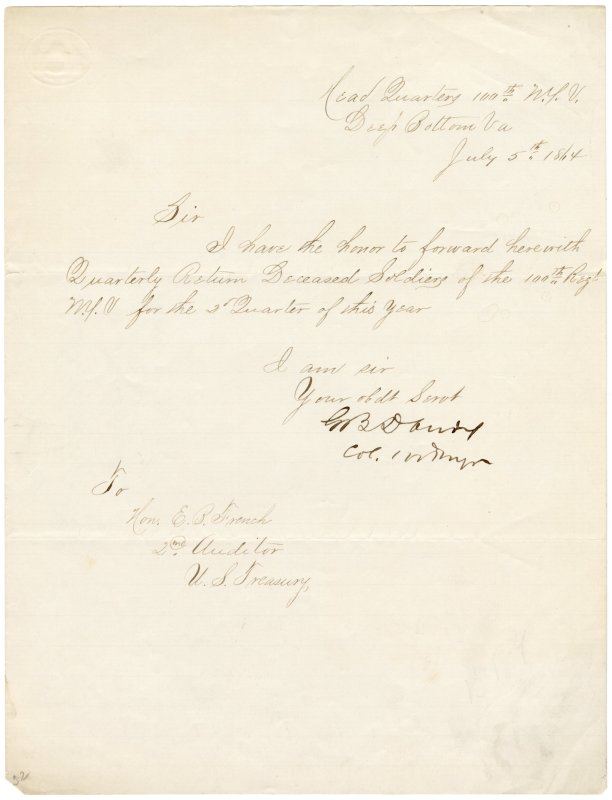 Head Quarters 100th N.Y.V.
Deep Bottom Va
July 5th 1864
Sir
I have the honor to forward herewith
Quarterly Return Deceased Soldiers of the 100th Regt
N.Y.V for the 2d Quarter of this Year
I am sir
Your obdt Servt
G B Dandy
Col. 100 NYV
To
Hon. E. B. French
2nd Auditor
U. S. Treasury,